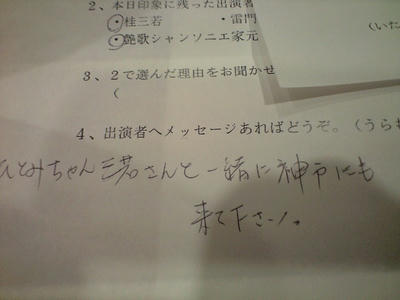 2、本日印象に残った出演者
・桂三若 ・雷門
・艶歌シャンソニエ家元
(いた
3、2で選んだ理由をお聞かせ
(
4、出演者へメッセージあればどうぞ。(うらも
ひとみちゃん三若さんと一緒に神戸にも
来て下さい。